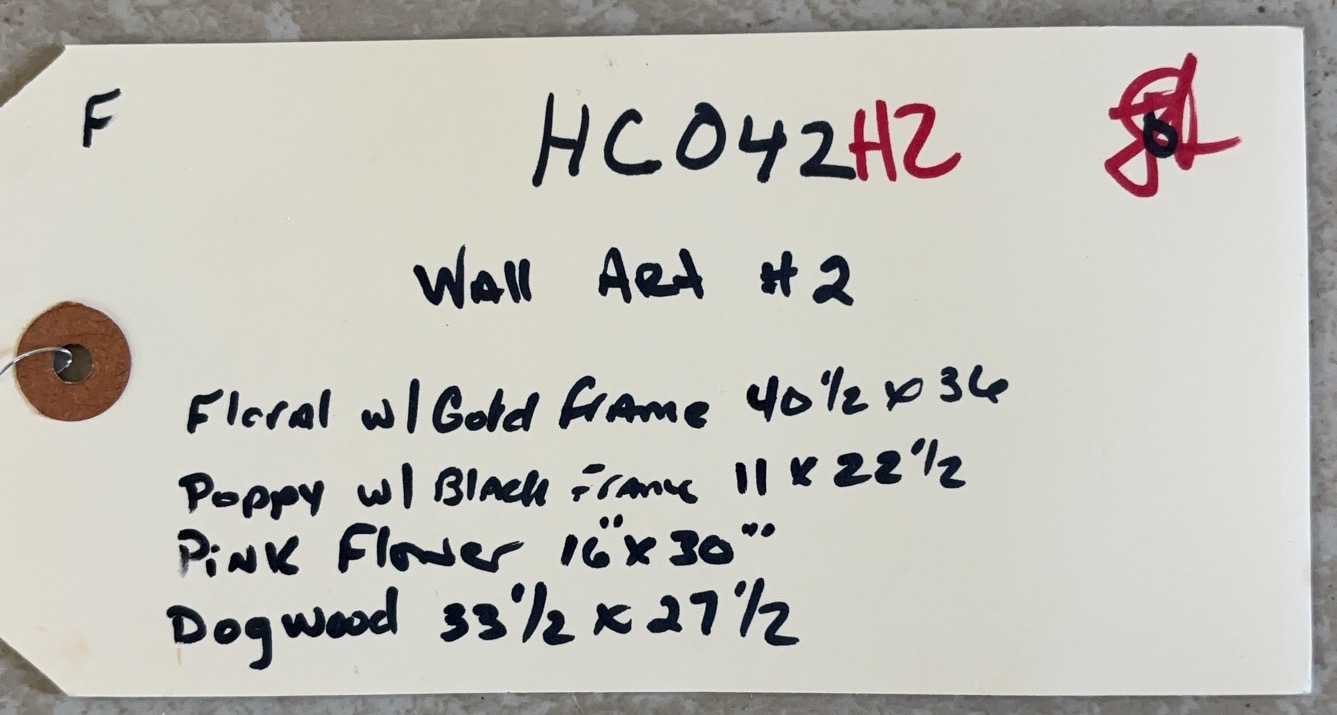 F HC042H2
Wall Art #2
Floral w/ Gold Frame 40 1/2 x 36
Poppy w/ Black Frame 11 x 22 1/2
Pink Flower 16" x 30"
Dogwood 33 1/2 x 27 1/2